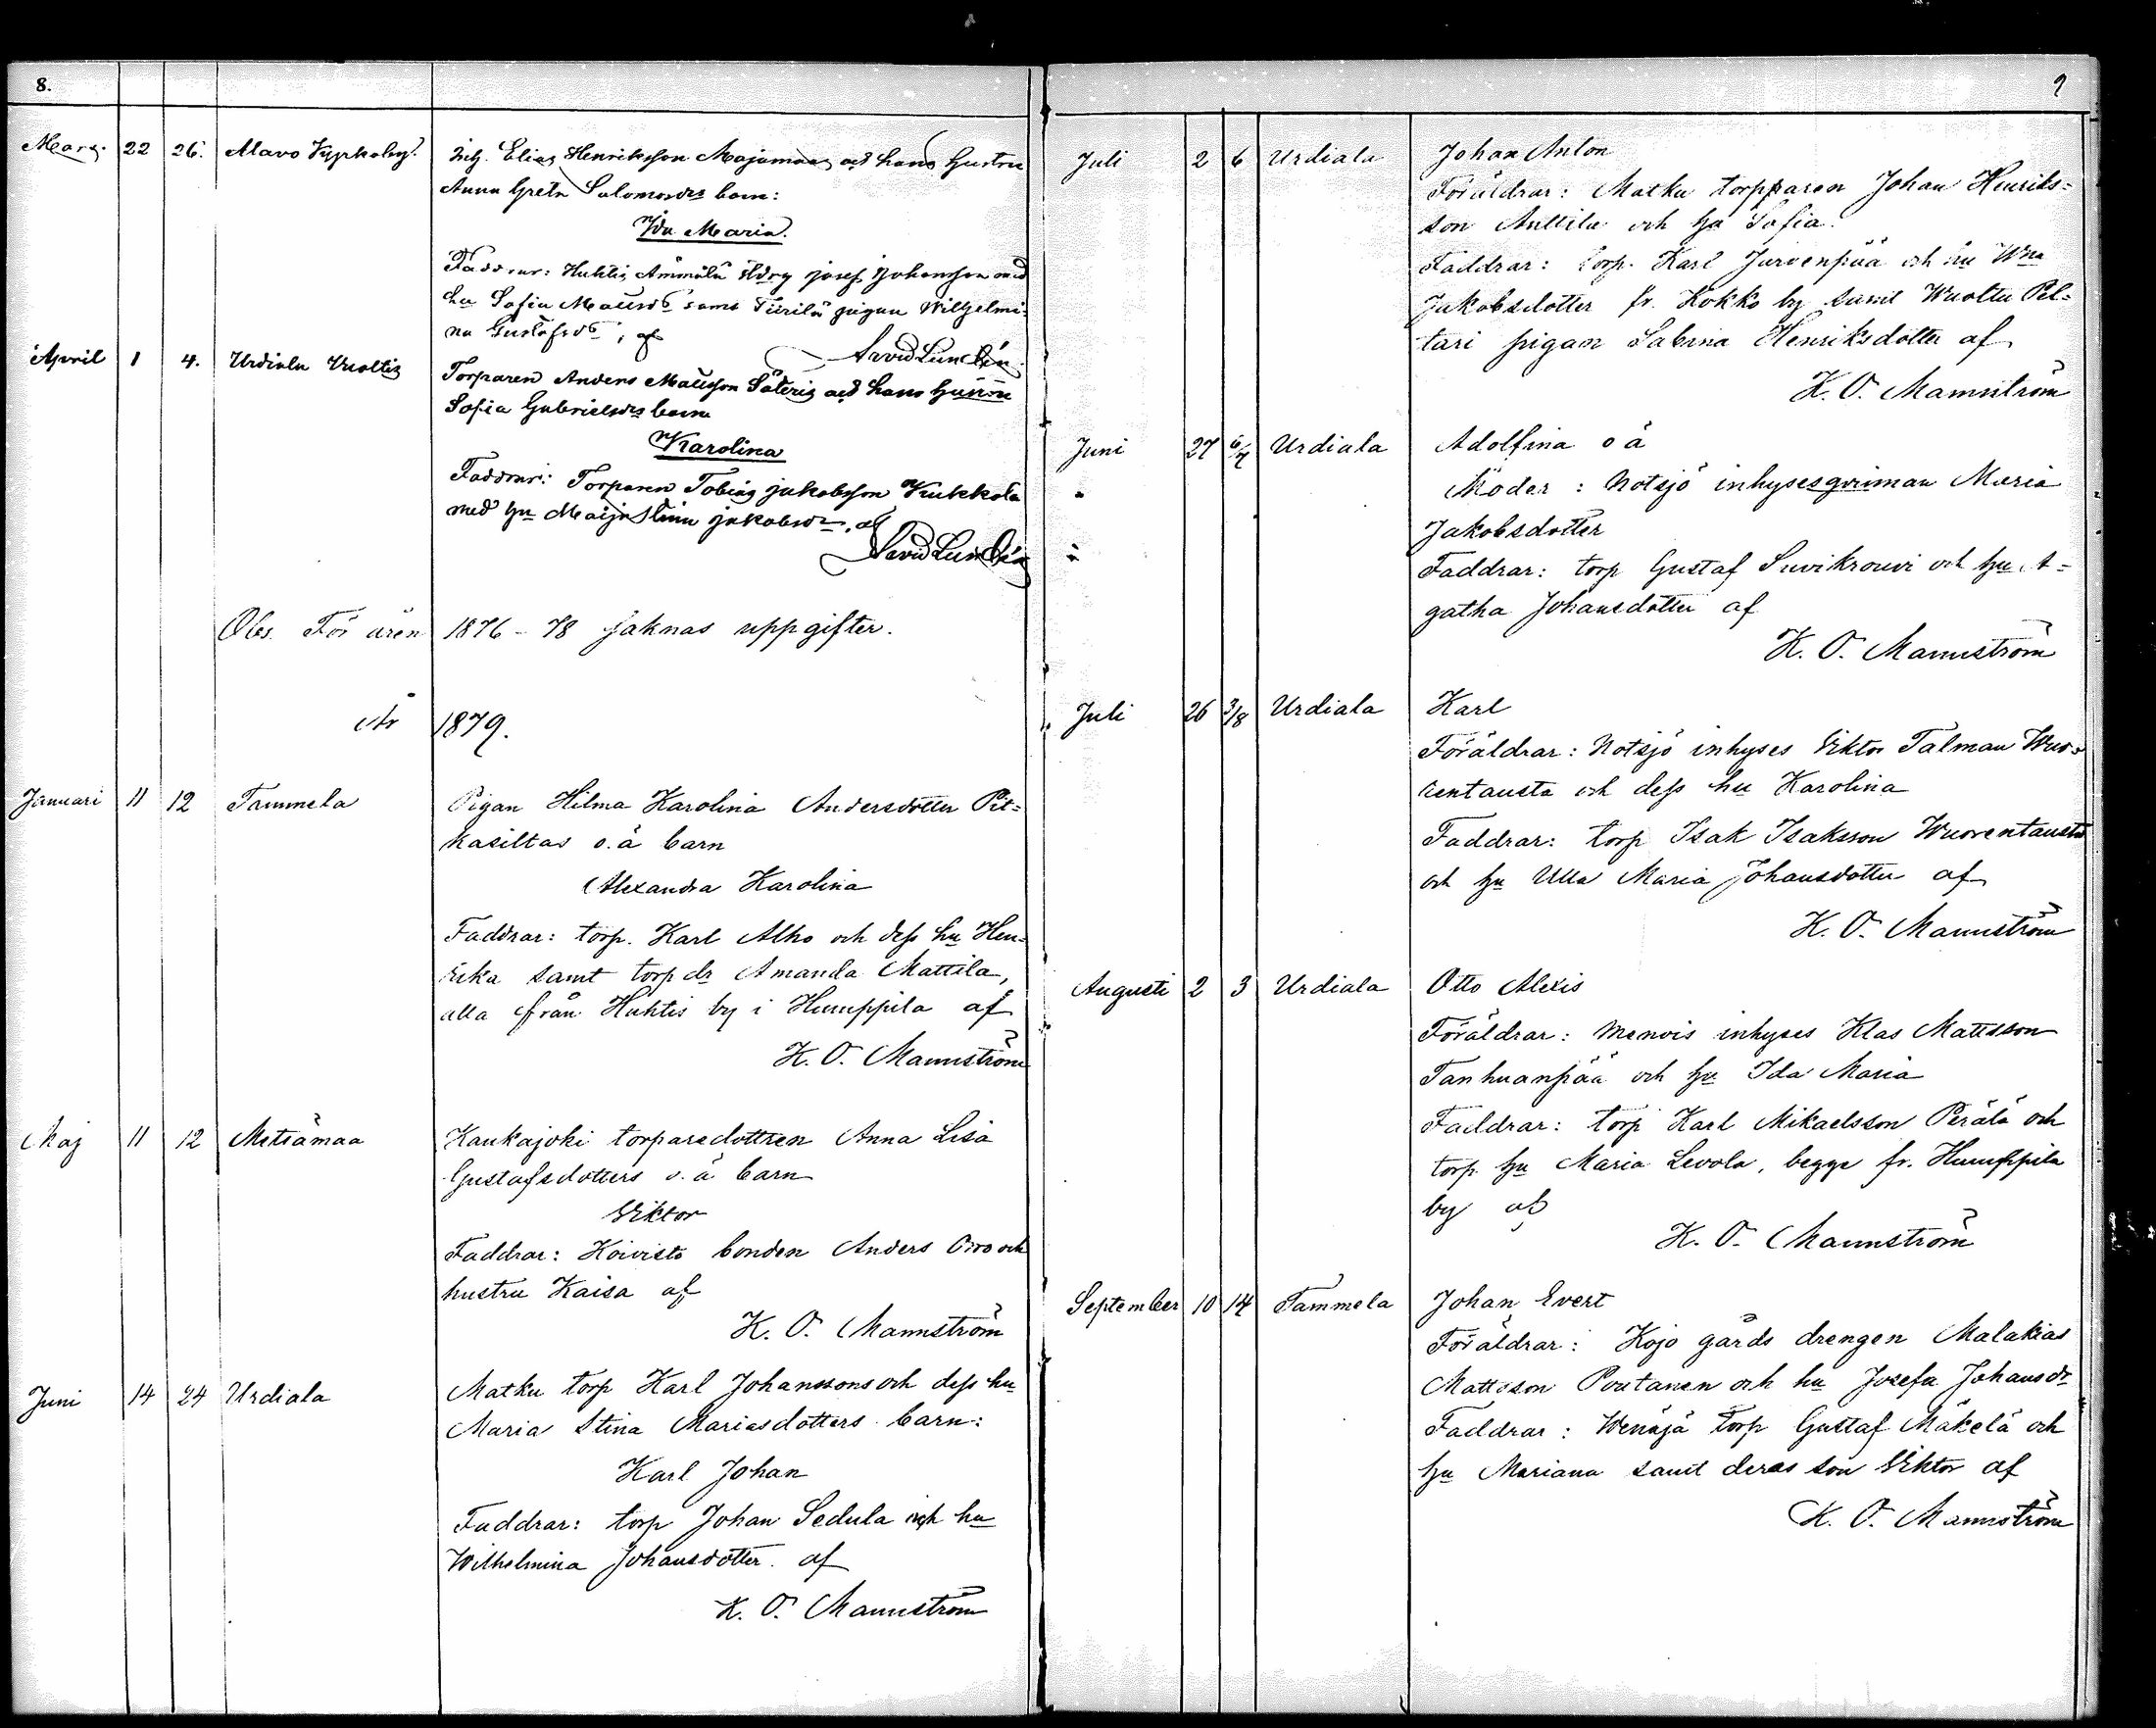 8.
Mars. 22 26. Alavo Kyrkoby. Inh. Elias Henriksson Majamaa och hans hustru
Anna Greta Salomonsdrs barn:
Ida Maria.
Faddrar: Huhtis Ammälä Josef Johansson med
hu Sofia Mattsdr samt Tiirilä pigan Wilhelmi-
na Gustafsdr, af
Arvid Lundén
April 1 4. Urdiala Vuoltis Torparen Anders Mattsson Säteris och hans hustru
Sofia Gabrielsdrs barn
Karolina
Faddrar: Torparen Tobias Jakobsson Kukkola
med hu Maija Stina Jakobsdr, af
Arvid Lundén
Obs. För åren 1876-78 saknas uppgifter.
År 1879.
Januari 11 12 Tammela Pigan Hilma Karolina Andersdotter Pit-
kasiltas o.ä barn
Alexandra Karolina
Faddrar: torp. Karl Alho och dess hu Hen-
rika samt torp dr Amanda Mattila,
alla från Huhtis by i Humppila af
K. O. Mannström
Maj 11 12 Metsämaa Kaukajoki torparedottren Anna Lisa
Gustafsdotters o.ä barn
Viktor
Faddrar: Koivisto bonden Anders Orro och
hustru Kaisa af
K. O. Mannström
Juni 14 24 Urdiala Matku torp Karl Johanssons och dess hu
Maria Stina Mariasdotters barn:
Karl Johan
Faddrar: torp Johan Sedula och hu
Wilhelmina Johansdotter. af
K. O. Mannström
9
Juli 2 6 Urdiala Johan Anton
Föräldrar: Matku torpparen Johan Henriks-
son Anttila och hu Sofia.
Faddrar: torp. Karl Jurvenpää och hu Wna
Jakobsdotter fr. Kokko by samt Wuoltu Pel-
tari pigan Sabina Henriksdotter af
K. O. Mannström
Juni 27 6/7 Urdiala Adolfina o ä
Moder: Notsjö inhysesqvinnan Maria
Jakobsdotter
Faddrar: torp Gustaf Suvikrouvi och hu A-
gatha Johansdotter af
K. O. Mannström
Juli 26 3/8 Urdiala Karl
Föräldrar: Notsjö inhyses Viktor Tålman Wuo-
rentausta och dess hu Karolina
Faddrar: torp Isak Isaksson Wuorentausta
och hu Ulla Maria Johansdotter af
K. O. Mannström
Augusti 2 3 Urdiala Otto Alexis
Föräldrar: Menois inhyses Klas Mattsson
Tanhuanpää och hu Ida Maria
Faddrar: torp Karl Mikaelsson Perälä och
torp. hu Maria Levola, begge fr. Humppila
by af
K. O. Mannström
September 10 14 Tammela Johan Evert
Föräldrar: Kojo gårds drengen Malakias
Mattsson Poutanen och hu Josefa Johansdr
Faddrar: Wenäjä torp Gustaf Mäkelä och
hu Mariana samt deras son Viktor af
K. O. Mannström